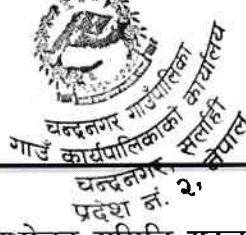 चन्द्रनगर गाउँपालिका
गाउँ कार्यपालिकाको कार्यालय
चन्द्रनगर, सर्लाही
नेपाल
प्रदेश नं. २,